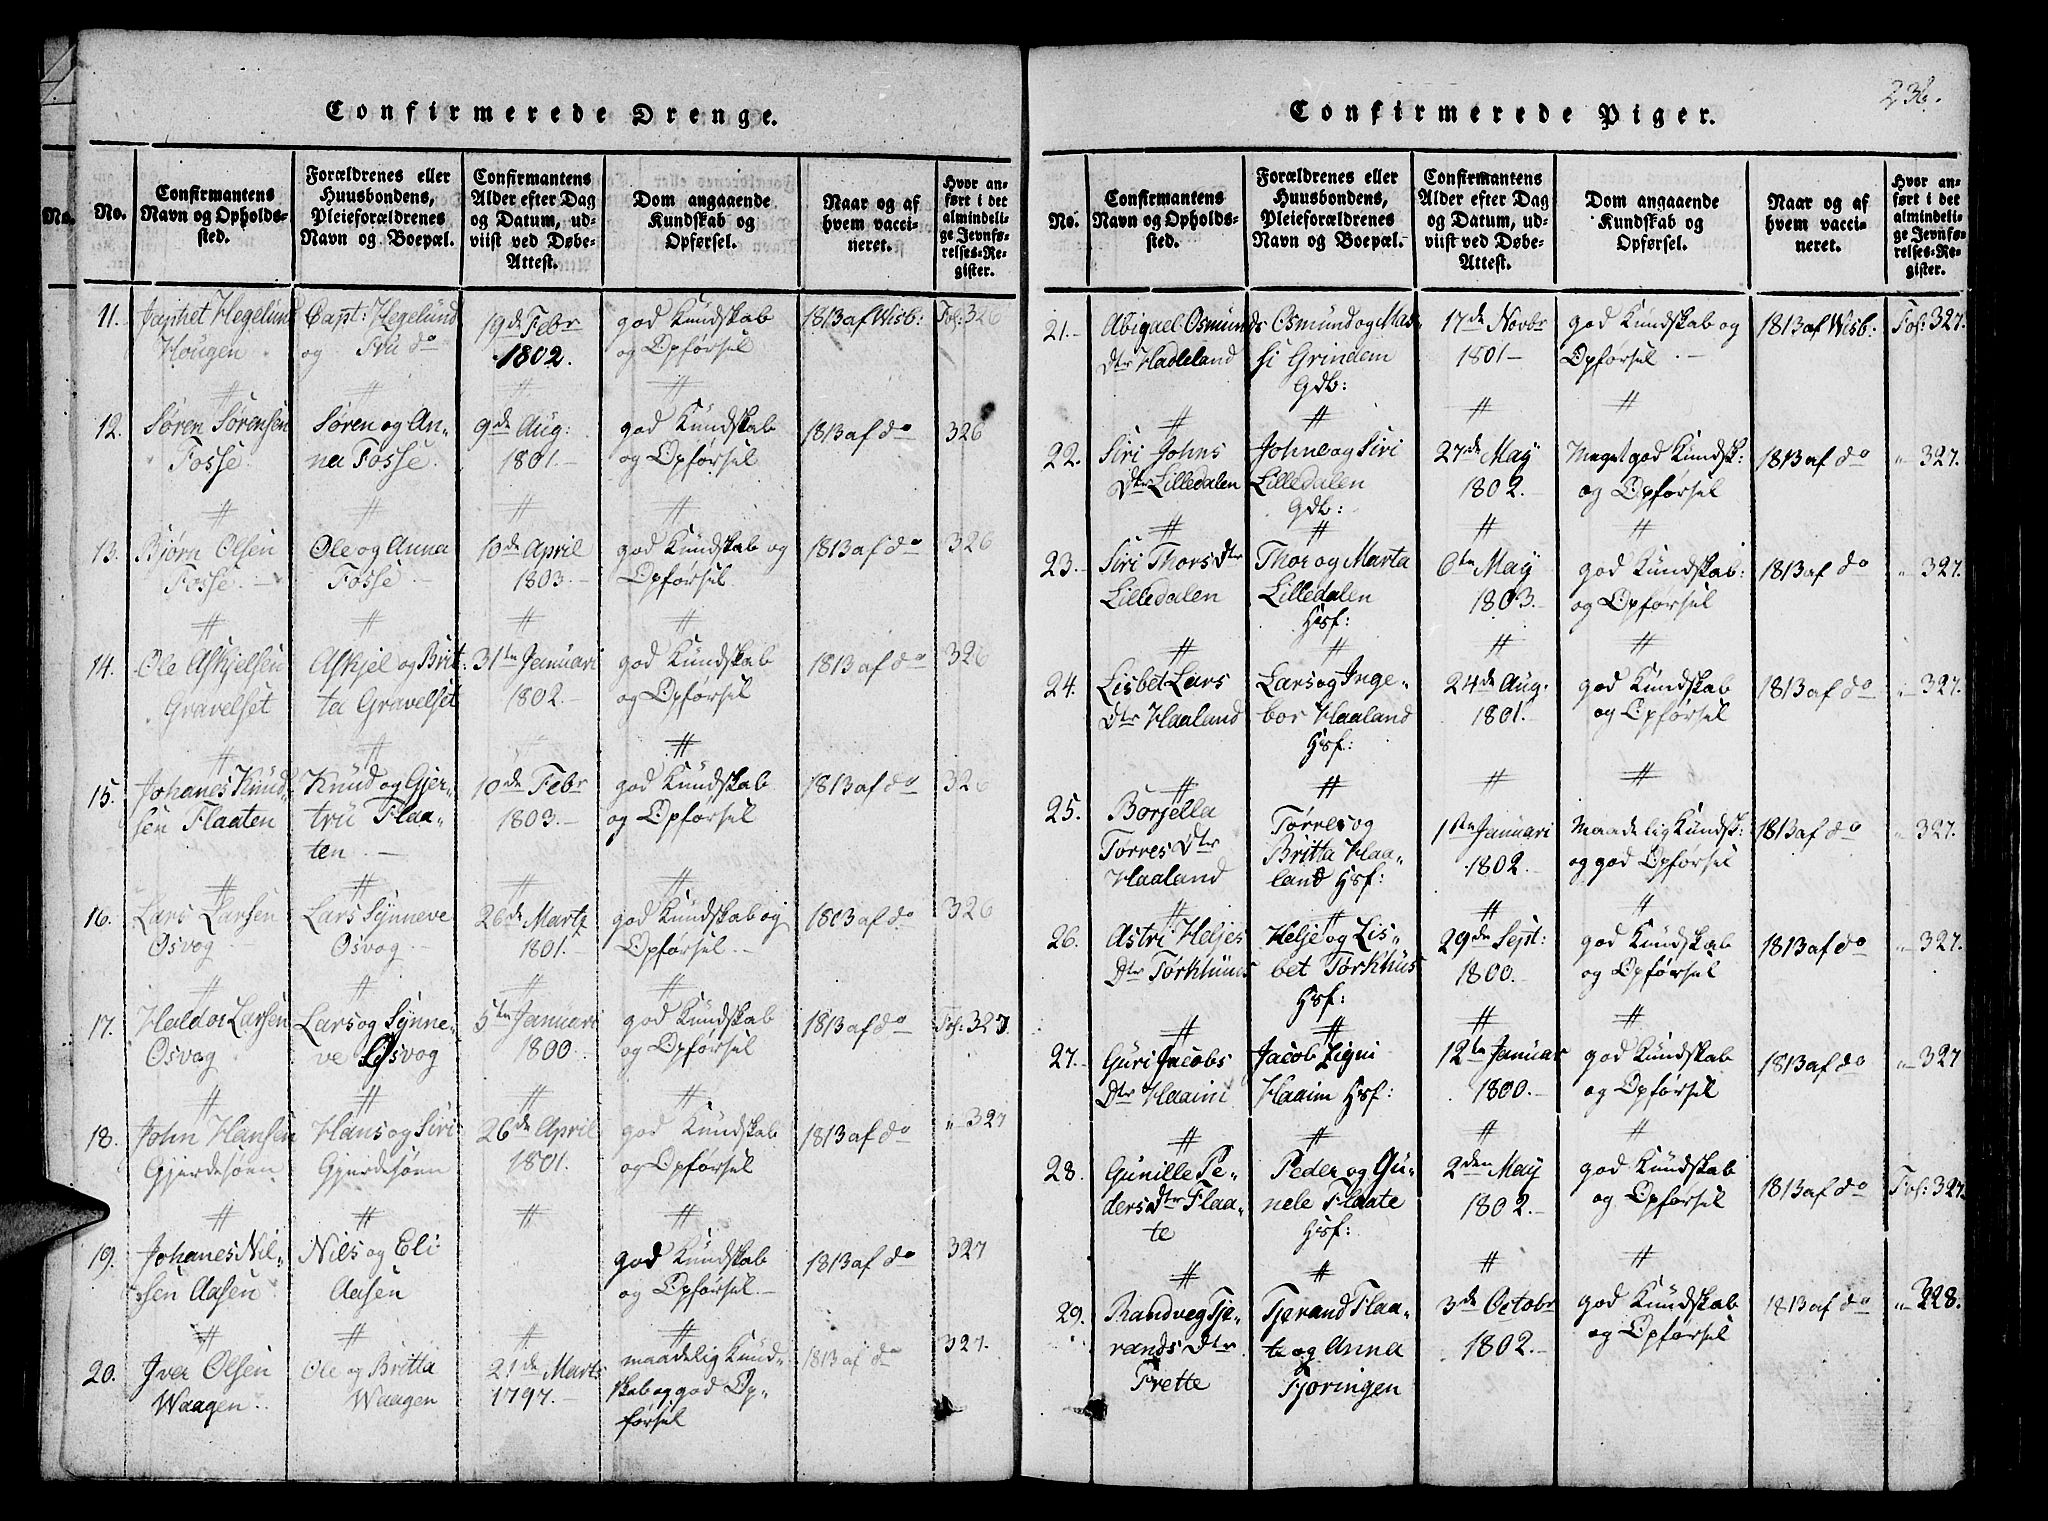 236.
Confirmerede Drenge.
No.
No.
Confirmantens
Navn og Opholds-
sted.
Forældrenes eller
Huusbondens,
Pleieforældrenes
Navn og Boepæl.
Confirmantens
Alder efter Dag
og Datum, ud-
viist ved Døbe-
Attest.
Dom angaaende
Kundskab og
Opførsel.
Naar og af
hvem vacci-
neret.
Hvor an-
ført i det
almindeli-
ge Jevnfø-
relses-Re-
gister.
11. Japhet Hegelund Capt: Hegelund 19de Febr god Kundskab 1813 af Wisb: Fol: 326
Hougen og Fru do 1802. og Opførsel
12. Søren Sørensen Søren og An- 9de Aug: god Kundskab 1813 af do 326
Fosse. na Fosse. 1801.- og Opførsel
13. Bjørn Olsen Ole og Anna 10de April god Kundskab og 1813 af do 326
Fosse.- Fosse. 1803.- Opførsel
14. Ole Askjelsen Askjel og Brit- 31te Januari god Kundskab 1813 af do 326
Gravelset ta Gravelset 1802. og Opførsel
15. Johanes Knud- Knud og Gjer- 10de Febr god Kundskab 1813 af do 326
sen Flaaten tru Flaa- 1803.- og Opførsel
ten.-
16. Lars Larsen Lars Synneve 26de Martz god Kundskab og 1803 af do 326
Osvog Osvog 1801.- Opførsel.-
17. Haldor Larsen Lars og Synne- 5te Januari god Kundskab 1813 af do Fol: 327.
Osvog ve Osvog 1800. og Opførsel
18. John Hansen Hans og Siri 26de April god Kundskab 1813 af do " 327
Gjerdesøen Gjerdesøen 1801. og Opførsel
19. Johanes Nil- Nils og Eli god Kundskab 1813 af do 327
sen Aasen Aasen og Opførsel.-
20. Iver Olsen Ole og Britta 21de Marts maadelig Kund- 1813 af do 327.
Waagen. Waagen 1797.- skab og god Op-
førsel
Confirmerede Piger.
No.
Confirmantens
Navn og Opholds-
sted.
Forældrenes eller
Huusbondens,
Pleieforældrenes
Navn og Boepæl.
Confirmantens
Alder efter Dag
og Datum, ud-
viist ved Døbe-
Attest.
Dom angaaende
Kundskab og
Opførsel.
Naar og af
hvem vacci-
neret.
Hvor an-
ført i det
almindeli-
ge Jevnfø-
relses-Re-
gister.
21.- Abigael Osmunds Osmund og Mad- 17de Novbr god Kundskab og 1813 af Wisb: Fol: 327.
Dtr Hadeland si Grindem 1801- Opførsel.-
Gdb:
22. Siri Johns Johne og Siri 27de May Meget god Kundsk: 1813 af do " 327.
Dtr Lilledalen Lilledalen 1802.- og Opførsel
Gdb:
23.- Siri Thors Dtr Thor og Marta 6te May god Kundskab: 1813 af do " 327.
Lilledalen Lilledalen 1803.- og Opførsel
Hsf:
24. Lisbet Lars Lars og Inge- 24de Aug. god Kundskab 1813 af do " 327.
Dtr Haaland bor Haaland 1801.- og Opførsel
Hsf:
25. Borjella Tørres og 1ste Januari Maadelig Kundsk: 1813 af do " 327.
Torres Dtr Britta Haa- 1802.- og god Opførsel
Haaland land Hsf:
26. Astri Heljes Helje og Lis- 29de Sept: god Kundskab 1813 af do " 327.
Dtr Tørkhuus bet Tørkhus 1800.- og Opførsel
Hsf:
27.- Guri Jacobs Jacob Ligni 12te Januar god Kundskab 1813 af do " 327
Dtr Haaim Haaim Hsf: 1800.- og Opførsel
28. Gunille Pe- Peder og Gu- 2den May god Kundskab 1813 af do Fol: 327.
ders Dtr Flaa- nele Flaate 1802.- og Opførsel
te Hsf:
29. Randveg Tje- Tjerand Flaa- 3de Octobr god Kundskab 1813 af do " 328.
rands Dtr te og Anna 1802.- og Opførsel
Frette Tjoringen